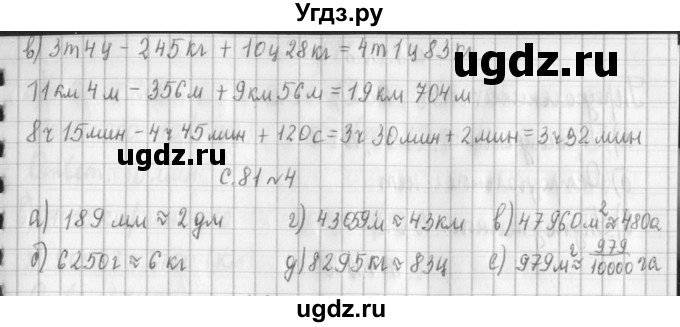 Угдз.ру
в) 3т4ц - 245кг + 10ц28кг = 4т1ц83кг
11км4м - 356м + 9км56м = 19км 704м
8ч15мин - 4ч45мин + 120с = 3ч30мин + 2мин = 3ч32мин
ugdz.ru ugdz.ru
с.81 №4
а) 189мм ≈ 2дм г) 43659м ≈ 43км в) 47960м² ≈ 480а
б) 6250г ≈ 6кг д) 8295кг ≈ 83ц е) 979м² ≈ 979/10000 га
ugdz.ru ugdz.ru